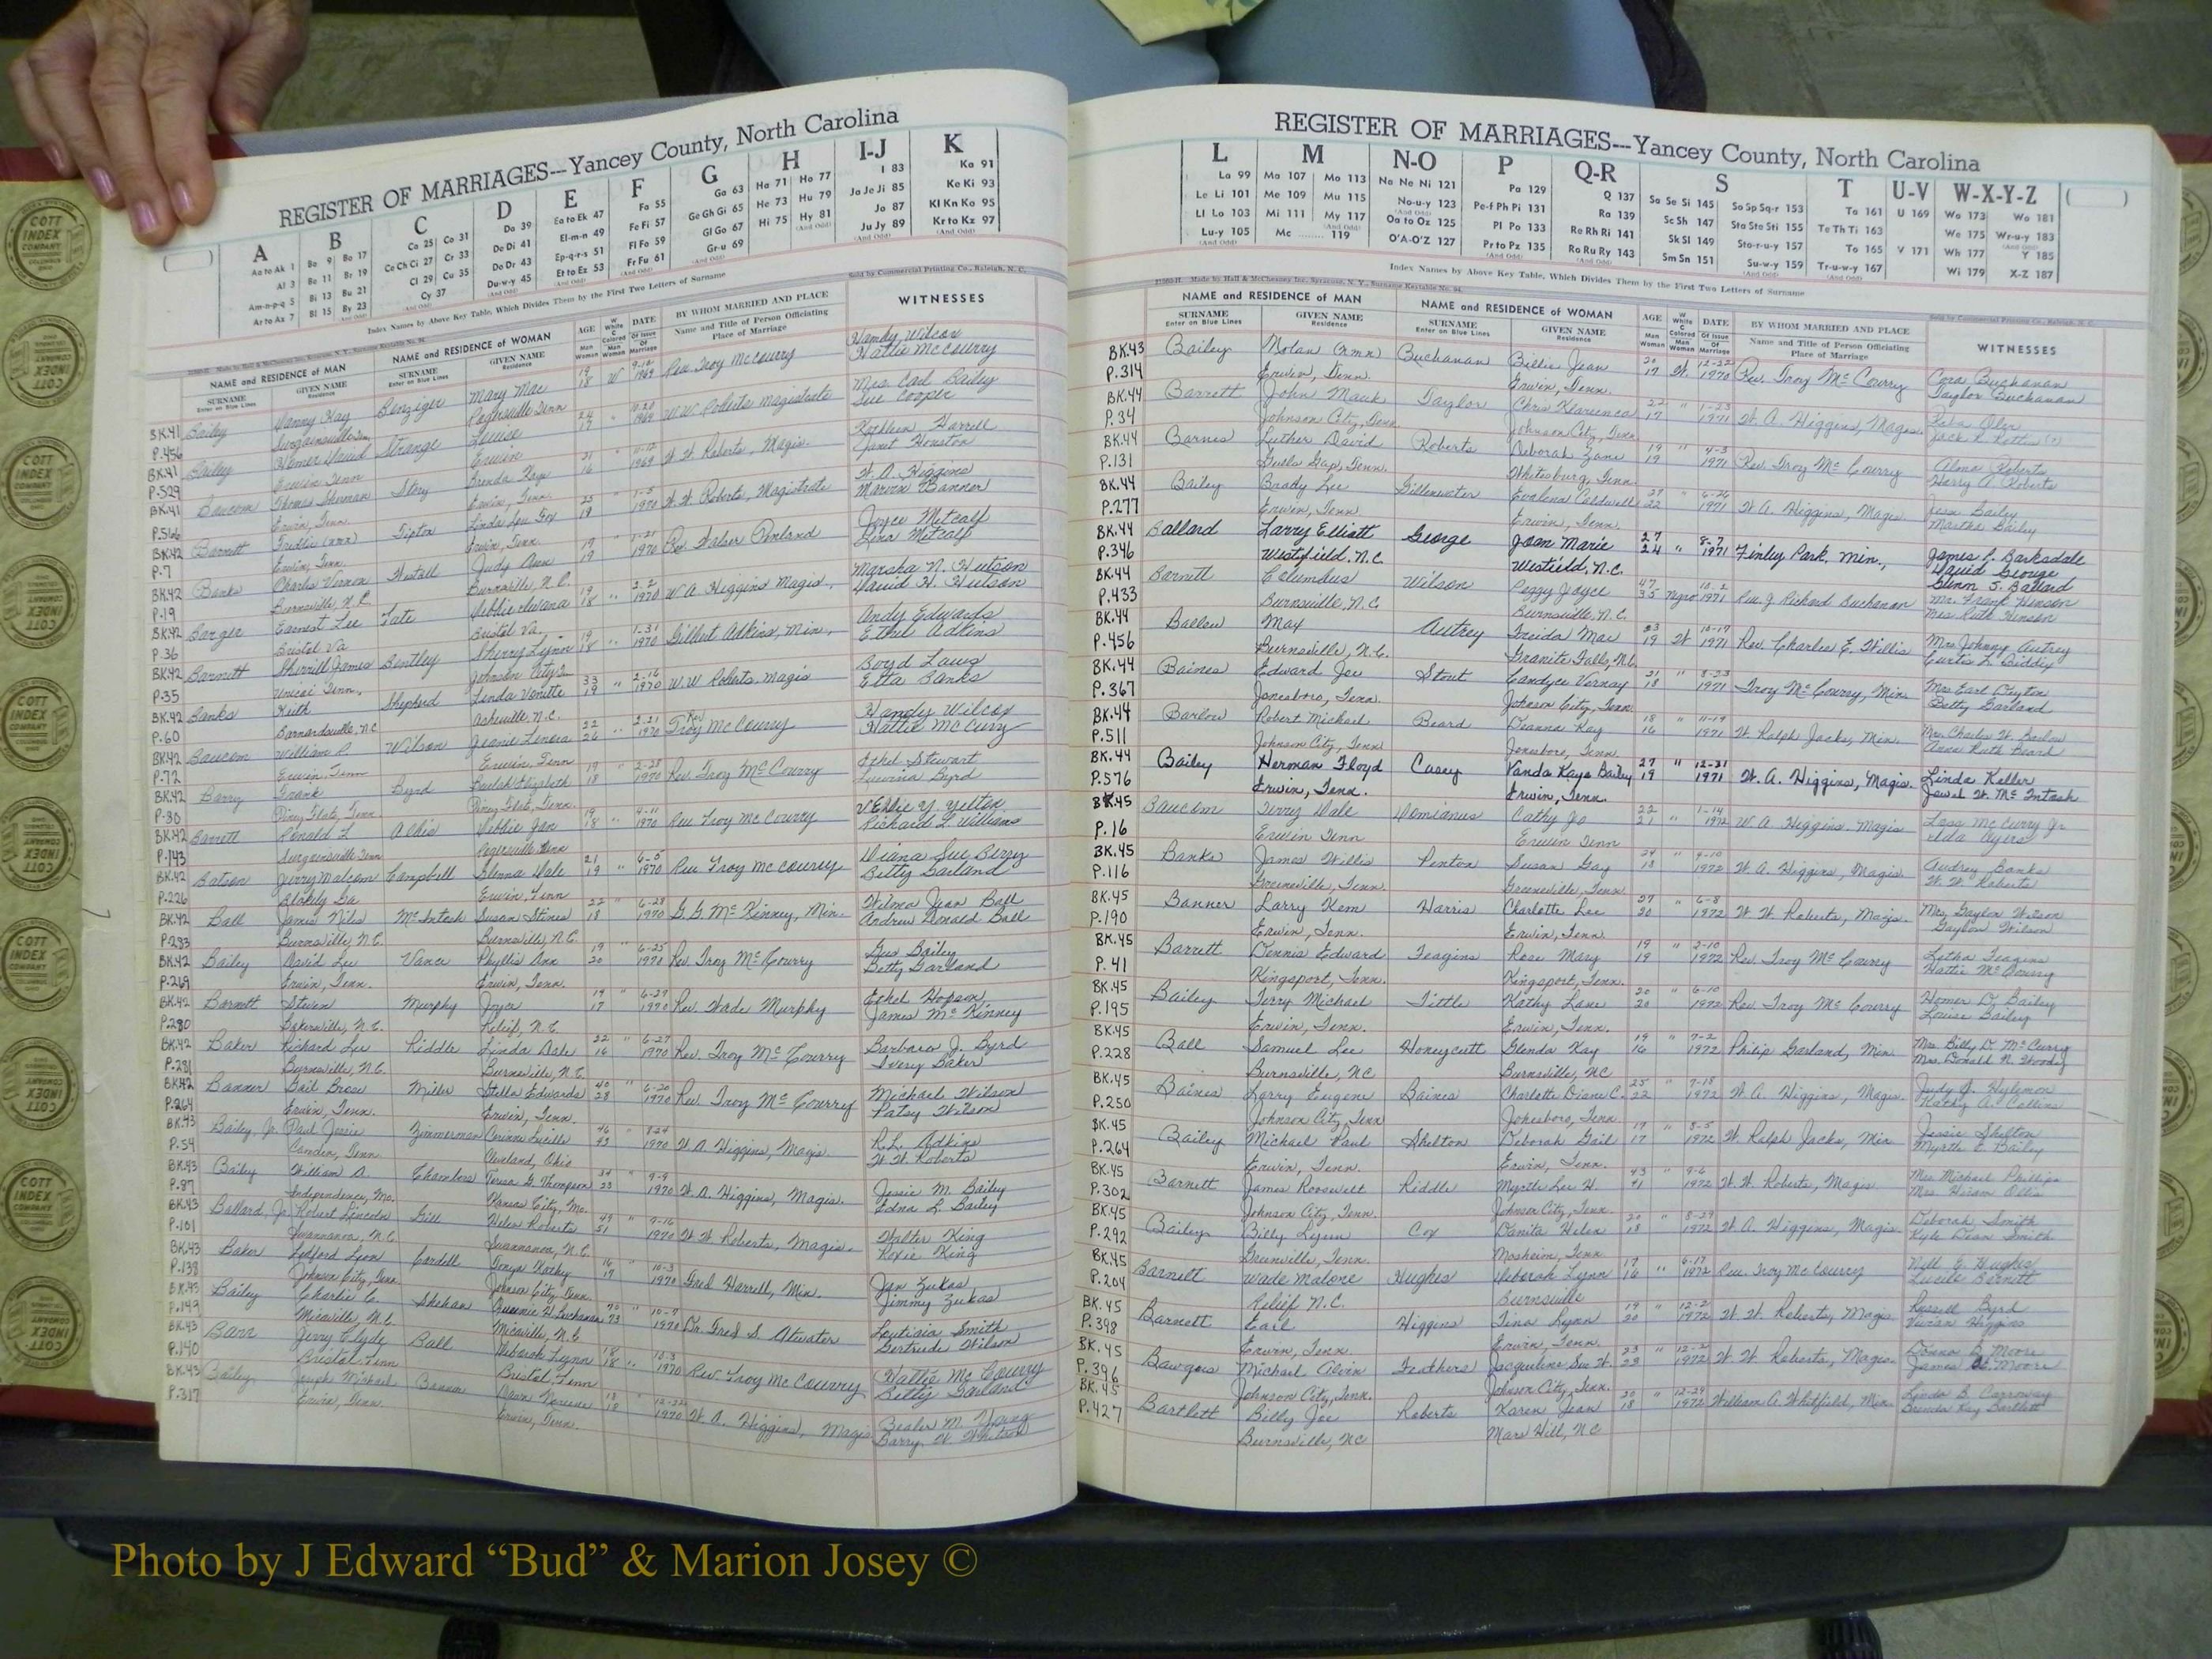 REGISTER OF MARRIAGES---Yancey County, North Carolina
A B C D E F G H I-J K
Aa to Ak 1 Ba 9 Bo 17 Ca 25 Co 31 Da 39 Ea to Ek 47 Fa 55 Ga 63 Ha 71 Ho 77 I 83 Ka 91
Al 3 Be 11 Br 19 Ce Ch Ci 27 Cr 33 De Di 41 El-m-n 49 Fe Fi 57 Ge Gh Gi 65 He 73 Hu 79 Ja Je Ji 85 Ke Ki 93
Am-n-p-q 5 Bi 13 Bu 21 Cl 29 Cu 35 Do Dr 43 Ep-q-r-s 51 Fl Fo 59 Gl Go 67 Hi 75 Hy 81 Jo 87 Kl Kn Ko 95
Ar to Az 7 Bl 15 By 23 Cy 37 Du-w-y 45 Et to Ez 53 Fr Fu 61 Gr-u 69 Ju Jy 89 Kr to Kz 97
Index Names by Above Key Table, Which Divides Them by the First Two Letters of Surname
Sold by Commercial Printing Co., Raleigh, N. C.
NAME and RESIDENCE of MAN NAME and RESIDENCE of WOMAN AGE DATE BY WHOM MARRIED AND PLACE WITNESSES
BK.41 Bailey Danny Kay Benziger Mary Mae 19 W 9-10 Rev Troy McCourry Wandy Wilcox
P.456 Surgoinsville Tenn Rogersville Tenn 18 1969 Hattie McCourry
BK.41 Bailey Homer David Strange Louise 24 " 10-20 W.W. Roberts magistrate Mrs. Carl Bailey
P.529 Erwin Tenn Erwin 17 1969 Sue Cooper
BK.41 Baucom Thomas Sherman Story Brenda Kaye 21 " 11-12 W. W. Roberts, Magis. Kathleen Harrell
P.566 Erwin, Tenn. Erwin, Tenn. 16 1969 Janet Houston
BK.42 Barnett Freddie (nmn) Tipton Linda Lou Fox 25 " 1-5 W. W. Roberts, Magistrate W. A. Higgins
P.7 Erwin, Tenn. Erwin, Tenn. 19 1970 Marvin Banner
BK.42 Banks Charles Vernon Westall Judy Ann 19 " 1-21 Rev Walser Penland Joyce Metcalf
P.19 Burnsville, N.C. Burnsville, N.C. 19 1970 Metcalf
BK.42 Barger Earnest Lee Tate Debbie 19 " 2-2 W A Higgins Magis. Marsha N. Hutson
P.36 Bristol Va Bristol Va. 18 1970 David H. Hutson
BK.42 Barnett Sherrill James Bentley Sherry Lynn 19 " 1-31 Gilbert Adkins, Min, Andy Edwards
P.35 Unicoi Tenn. Johnson City Tn 18 1970 Ethel Adkins
BK.42 Banks Keith Shepherd Linda Venette 33 " 2-16 W.W Roberts, magis Boyd Laws
P.60 Barnardsville, N.C Asheville, N.C. 19 1970 Etta Banks
BK.42 Baucom William Wilson Jeanie Lenora 22 " 2-21 Rev Troy McCourry Wandy Wilcox
P.72 Erwin Tenn Erwin, Tenn 26 1970 Hattie McCurry
BK.42 Barry Frank Byrd Beulah Elizabeth 19 " 2-28 Rev. Troy McCourry Ethel Stewart
P.30 Piney Flats, Tenn Piney Flats, Tenn. 18 1970 Byrd
BK.42 Barrett Ronald L Debbie Jan 19 " 4-11 Rev Troy McCourry Debbie Y. Yelton
P.143 Surgoinsville Tenn Rogersville Tenn 18 1970 Richard L Williams
BK.42 Batson Jerry Malcom Campbell Glenna Dale 21 " 6-5 Rev Troy McCourry Diana Sue Berry
P.226 Blakely Ga Erwin, Tenn 19 1970 Betty Garland
BK.42 Ball James Niles McIntosh Susan Stines 22 " 6-28 G.G. McKinney, Min. Wilma Jean Ball
P.293 Burnsville, N.C. Burnsville, N.C. 18 1970 Andrew Donald Ball
BK.42 Bailey David Lee Vance Phyllis Ann 19 " 6-25 Rev Troy McCourry Gus Bailey
P.269 Erwin, Tenn. Erwin, Tenn. 20 1970 Betty Garland
BK.42 Barnett Steven Murphy Joyce 19 " 6-27 Rev. Wade Murphy Ethel Hopson
P.280 Bakersville, N.C. Relief, N.C. 17 1970 James McKinney
BK.42 Baker Richard Lee Riddle Linda Dale 22 " 6-27 Rev. Troy McCourry Barbara J. Byrd
P.281 Burnsville, N.C. Burnsville, N.C. 16 1970 Baker
BK.42 Banner Bail Brose Miller Stella Edwards 40 " 6-20 Rev Troy McCourry Michael Wilson
P.264 Erwin, Tenn. Erwin, Tenn. 28 1970 Patsy Wilson
BK.43 Bailey, Jr. Paul Jessie Zimmerman Corinne Lucille 46 " 8-24 W. A. Higgins, Magis. R.L. Adkins
P.54 Camden, Tenn. Cleveland, Ohio 43 1970 W. W. Roberts
BK.43 Bailey William D. Chambers Teresa G. Thompson 34 " 9-9 W. A. Higgins, Magis. Jessie M. Bailey
P.97 Independence, Mo. Kansas City, Mo. 23 1970 Edna L. Bailey
BK.43 Ballard, Jr. Robert Lincoln Gill Helen Roberts 49 " 9-16 W. W. Roberts, Magis. Walter King
P.101 Swannanoa, N.C. Swannanoa, N.C. 51 1970 Roxie King
BK.43 Baker Ledford Lynn Cordell Tonya Kathy 16 " 10-3 Fred Harrell, Min. Jan Zukas
P.138 Johnson City, Tenn Johnson City, Tenn. 19 1970 Jimmy Zukas
BK.43 Bailey Charlie C. Shehan Queenie H. Buchanan 70 " 10-7 Dr. Fred S. Atwater Leutisia Smith
P.142 Micaville, N.C. Micaville, N.C 73 1970 Gertrude Wilson
BK.43 Barr Jerry Clyde Ball Deborah Lynn 18 " 10-3 Rev. Troy McCourry Hattie McCourry
P.140 Bristol Tenn Bristol Tenn 18 1970 Betty Garland
BK.43 Bailey Joseph Michael Banner 18 " 12-22 W. A. Higgins, Magis Bealer M. Young
P.317 Erwin, Tenn. Erwin, Tenn. 18 1970 Barry W Whitson
REGISTER OF MARRIAGES---Yancey County, North Carolina
L M N-O P Q-R S T U-V W-X-Y-Z
La 99 Ma 107 Mo 113 Na Ne Ni 121 Pa 129 Q 137 Sa Se Si 145 So Sp Sq-r 153 Ta 161 U 169 Wa 173 Wo 181
Le Li 101 Me 109 Mu 115 No-u-y 123 Pe-f Ph Pi 131 Ra 139 Sc Sh 147 Sta Ste Sti 155 Te Th Ti 163 We 175 Wr-u-y 183
Ll Lo 103 Mi 111 My 117 Oa to Oz 125 Pl Po 133 Re Rh Ri 141 Sk Sl 149 Sto-r-u-y 157 To 165 V 171 Wh 177 Y 185
Lu-y 105 Mc ........ 119 O'A-O'Z 127 Pr to Pz 135 Ro Ru Ry 143 Sm Sn 151 Su-w-y 159 Tr-u-w-y 167 Wi 179 X-Z 187
Index Names by Above Key Table, Which Divides Them by the First Two Letters of Surname
Made by Hall & McChesney Inc., Syracuse, N. Y., Surname Keytable No. 94.
NAME and RESIDENCE of MAN NAME and RESIDENCE of WOMAN AGE DATE BY WHOM MARRIED AND PLACE WITNESSES
SURNAME GIVEN NAME SURNAME GIVEN NAME Name and Title of Person Officiating
Enter on Blue Lines Residence Enter on Blue Lines Residence Place of Marriage
BK.43 Bailey Nolan (nmn) Buchanan Billie Jean 20 W. 12-22 Rev. Troy McCourry Cora Buchanan
P.314 Erwin, Tenn. Erwin, Tenn. 17 1970 Taylor Buchanan
BK.44 Barrett John Mauk Taylor Chris 22 " 1-23 W. A. Higgins, Magis. Reba Oler
P.34 Johnson City, Tenn. Johnson City, Tenn 17 1971 Jack R.
BK.44 Barnes Luther David Roberts Deborah Zane 19 " 4-3 Rev. Troy McCourry Alma Roberts
P.131 Gap, Tenn. Whitesburg, Tenn. 19 1971 Harry A. Roberts
BK.44 Bailey Brady Lee Gillenwater Evalena Caldwell 27 " 6-26 W. A. Higgins, Magis Bailey
P.277 Erwin, Tenn Erwin, Tenn. 22 1971 Martha Bailey
BK.44 Ballard Larry Elliott George Joan Marie 27 " 8-7 Finley Park, Min., James P. Barksdale
P.346 Westfield, N.C. Westfield, N.C. 24 1971 David George
BK.44 Barnett Columbus Wilson Peggy Joyce 47 Negro 10-2 Rev. J Richard Buchanan Glenn S. Ballard
P.433 Burnsville, N.C Burnsville, N.C. 35 1971 Mr. Frank Henson
BK.44 Ballew Max Autrey Freida Mae 23 W 10-17 Rev. Charles E. Willis Mrs Johnny Autrey
P.456 Burnsville, N.C. Granite Falls, N.C. 19 1971 Curtis L. Biddix
BK.44 Baines Edward Joe Stout Candyce Vernay 21 " 8-23 Troy McCourry, Min Mrs Earl Peyton
P.367 Jonesboro, Tenn. Johnson City, Tenn. 18 1971 Betty Garland
BK.44 Barlow Robert Michael Beard Deanna Kay 18 " 11-19 W. Ralph Jacks, Min. Mrs. Charles W. Barlow
P.511 Johnson City, Tenn Jonesboro, Tenn. 16 1971 Anna Ruth Beard
BK.44 Bailey Herman Floyd Casey Vanda Kaye Bailey 27 " 12-31 W. A. Higgins, Magis. Linda Keller
P.576 Erwin, Tenn. Erwin, Tenn. 19 1971 Jewel W. McIntosh
BK.45 Baucom Terry Dale Domianus Cathy Jo 22 " 1-14 W. A. Higgins Magis McCurry Jr
P.16 Erwin Tenn Erwin Tenn 21 1972 Ida Ayers
BK.45 Banks James Willis Penton Susan Gay 24 " 4-10 W. A. Higgins, Magis. Audrey Banks
P.116 Greeneville, Tenn. Greeneville, Tenn. 18 1972 W. W. Roberts
BK.45 Banner Larry Kem Harris Charlotte Lee 27 " 6-8 W. W. Roberts, Magis. Mrs. Gaylon Wilson
P.190 Erwin, Tenn. Erwin, Tenn. 20 1972 Gaylon Wilson
BK.45 Barrett Dennis Edward Feagins Rose Mary 19 " 2-10 Rev. Troy McCourry Letha Feagins
P.41 Kingsport, Tenn. Kingsport, Tenn. 19 1972 Hattie McCourry
BK.45 Bailey Terry Michael Tittle Kathy Lane 20 " 6-10 Rev. Troy McCourry Homer D. Bailey
P.195 Erwin, Tenn. Erwin, Tenn. 20 1972 Louise Bailey
BK.45 Ball Samuel Lee Honeycutt Glenda Kay 19 " 7-2 Philip Garland, Min Mrs. Billy D. McCurry
P.228 Burnsville, NC Burnsville, NC 16 1972 Mrs. Donald R. Woody
BK.45 Baines Larry Eugene Baines Charlotte Diane C. 25 " 7-18 W. A. Higgins, Magis. Judy
P.250 Johnson City, Tenn Jonesboro, Tenn 22 1972 Kathy A. Collins
BK.45 Bailey Michael Paul Shelton Deborah Gail 19 " 8-5 W Ralph Jacks, Min Jessie Shelton
P.264 Erwin, Tenn. Erwin, Tenn. 17 1972 Myrtle E Bailey
BK.45 Barnett James Roosevelt Riddle Myrtle Lee H. 43 " 9-6 W. W. Roberts, Magis Mrs Michael Phillips
P.302 Johnson City, Tenn. Johnson City, Tenn. 41 1972 Mrs. Hiram Ollis
BK.45 Bailey Billy Lynn Cox Danita Helen 20 " 8-29 W. A. Higgins, Magis Deborah Smith
P.292 Greenville, Tenn. Mosheim, Tenn 18 1972 Kyle Dean Smith
BK.45 Barnett Wade Malone Hughes Deborah Lynn 17 " 6-17 Rev. Troy McCourry Nell E. Hughes
P.204 Relief N.C. Burnsville 16 1972 Lucille Barnett
BK.45 Barnett Earl Higgins Tena Lynn 19 " 12-2 W. W. Roberts, Magis. Russell Byrd
P.398 Erwin, Tenn. Erwin, Tenn. 20 1972 Vivian Higgins
BK.45 Bawgus Michael Alvin Feathers Jacqueline Sue W. 23 " 12-2 W. W. Roberts, Magis. Donna B Moore
P.396 Johnson City, Tenn. Johnson City, Tenn. 23 1972 James Moore
BK.45 Bartlett Billy Joe Roberts Karen Jean 20 " 12-29 William A. Whitfield, Min. Linda B. Carroway
P.427 Burnsville, NC Mars Hill, NC 18 1972 Brenda Kay Bartlett
Photo by J Edward “Bud” & Marion Josey ©